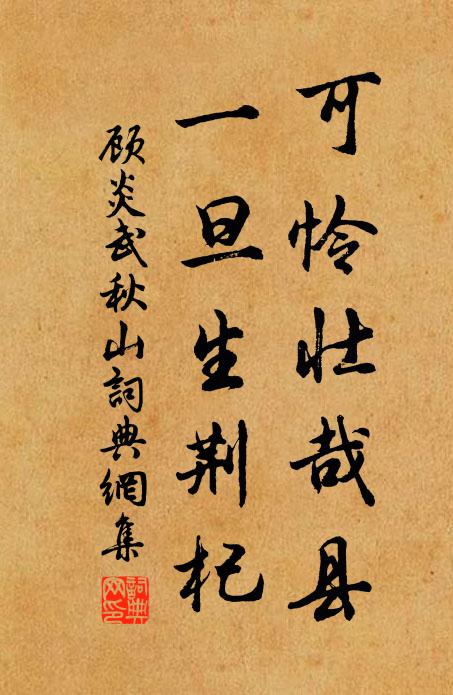 可怜壮哉县
一旦生荆杞
顾炎武秋山詞典網集
詞典网印